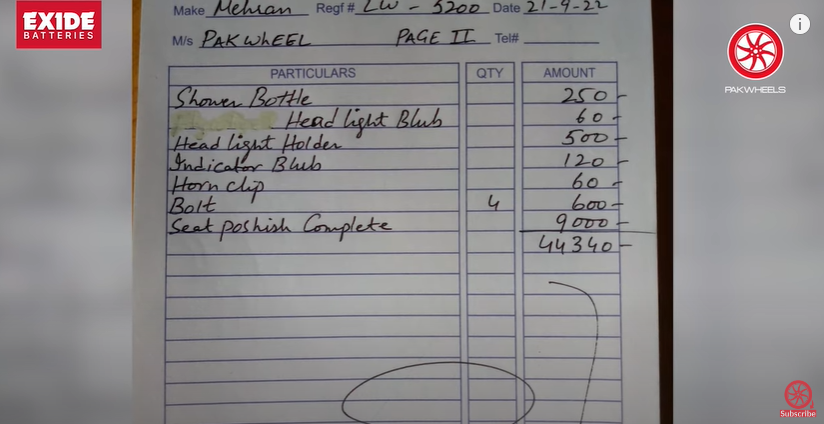 EXIDE
BATTERIES
Make Mehran Regf # LW - 5200 Date 21-9-22
M/s PAK WHEEL PAGE II Tel#
PARTICULARS QTY AMOUNT
Shower Bottle 250-
Head light Blub 60-
Head light Holder 500-
Indicator Blub 120-
Horn clip 60-
Bolt 4 600-
Seat poshish Complete 9000-
44340-
PAKWHEELS
Subscribe